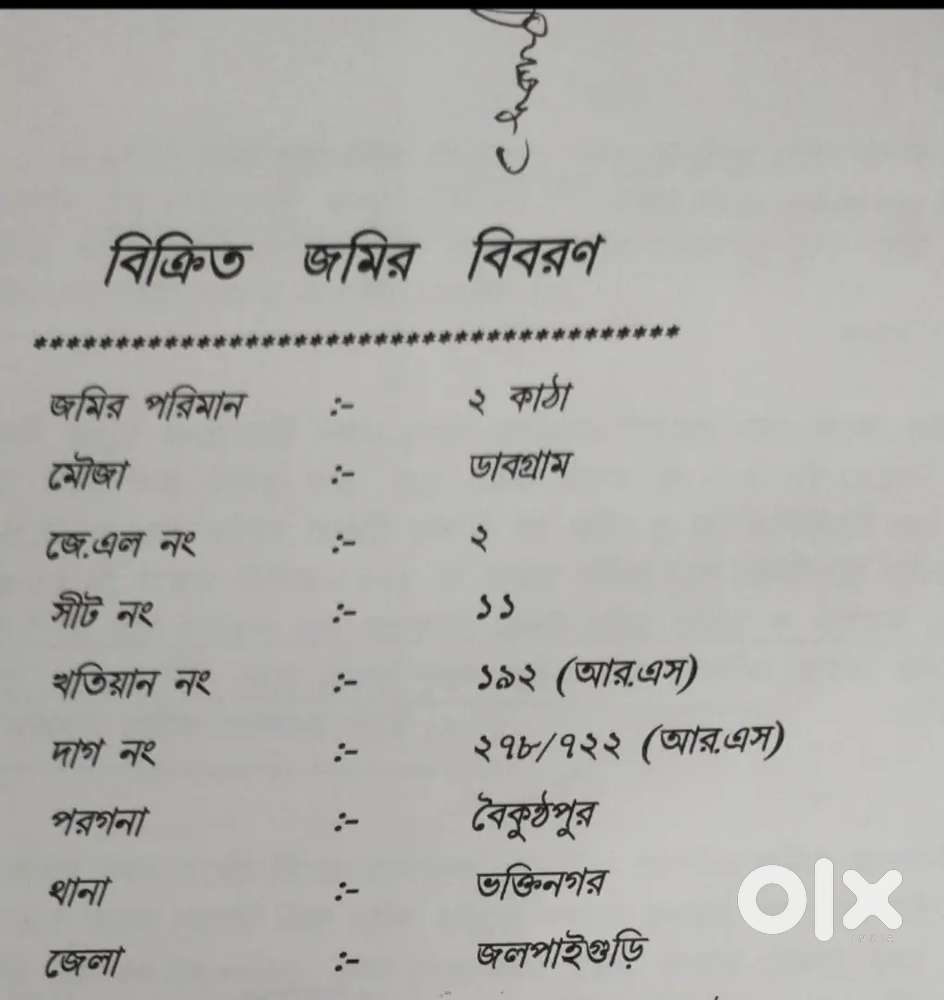 বিক্রিত জমির বিবরণ
***************************************
জমির পরিমান :- ২ কাঠা
মৌজা :- ডাবগ্রাম
জে.এল নং :- ২
সীট নং :- ১১
খতিয়ান নং :- ১৯২ (আর.এস)
দাগ নং :- ২৭৮/৭২২ (আর.এস)
পরগনা :- বৈকুন্ঠপুর
থানা :- ভক্তিনগর
জেলা :- জলপাইগুড়ি
olx
INDIA